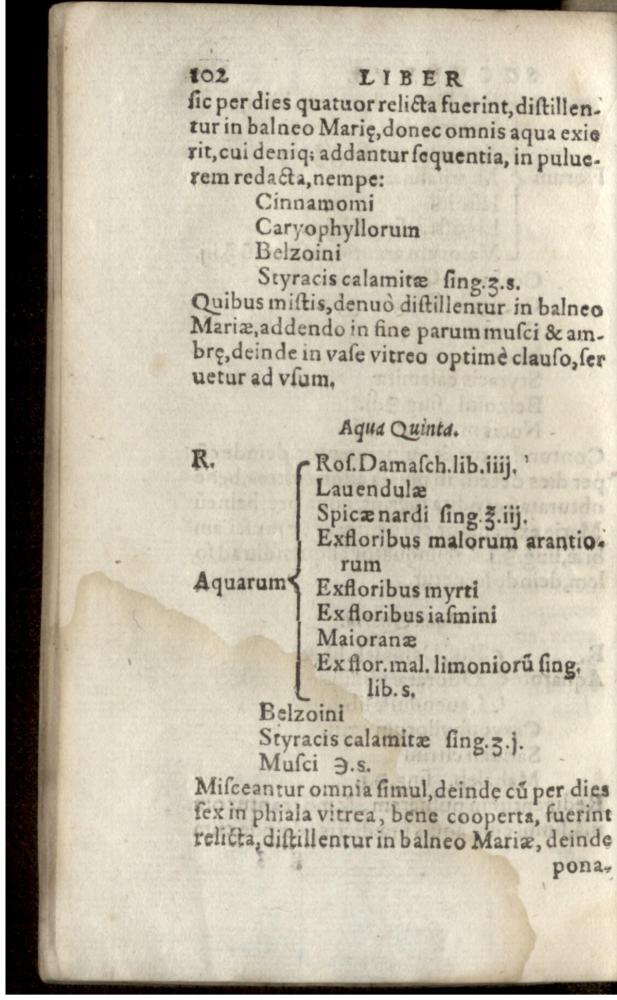 102 LIBER
sic per dies quatuor relicta fuerint, distillen-
tur in balneo Marię, donec omnis aqua exie
rit, cui deniq; addantur sequentia, in pulue-
rem redacta, nempe:
Cinnamomi
Caryophyllorum
Belzoini
Styracis calamitæ sing.ʒ.s.
Quibus mistis, denuò distillentur in balneo
Mariæ, addendo in fine parum musci & am-
brę, deinde in vase vitreo optimè clauso, ser
uetur ad vsum.
Aqua Quinta.
R. Ros. Damasch. lib. iiij.
Lauendulæ
Spicæ nardi sing.℥.iij.
Ex floribus malorum arantio-
rum
Aquarum Ex floribus myrti
Ex floribus iasmini
Maioranæ
Ex flor. mal. limoniorũ sing.
lib. s.
Belzoini
Styracis calamitæ sing.ʒ.j.
Musci ℈.s.
Misceantur omnia simul, deinde cũ per dies
sex in phiala vitrea, bene cooperta, fuerint
relicta, distillentur in balneo Mariæ, deinde
pona-